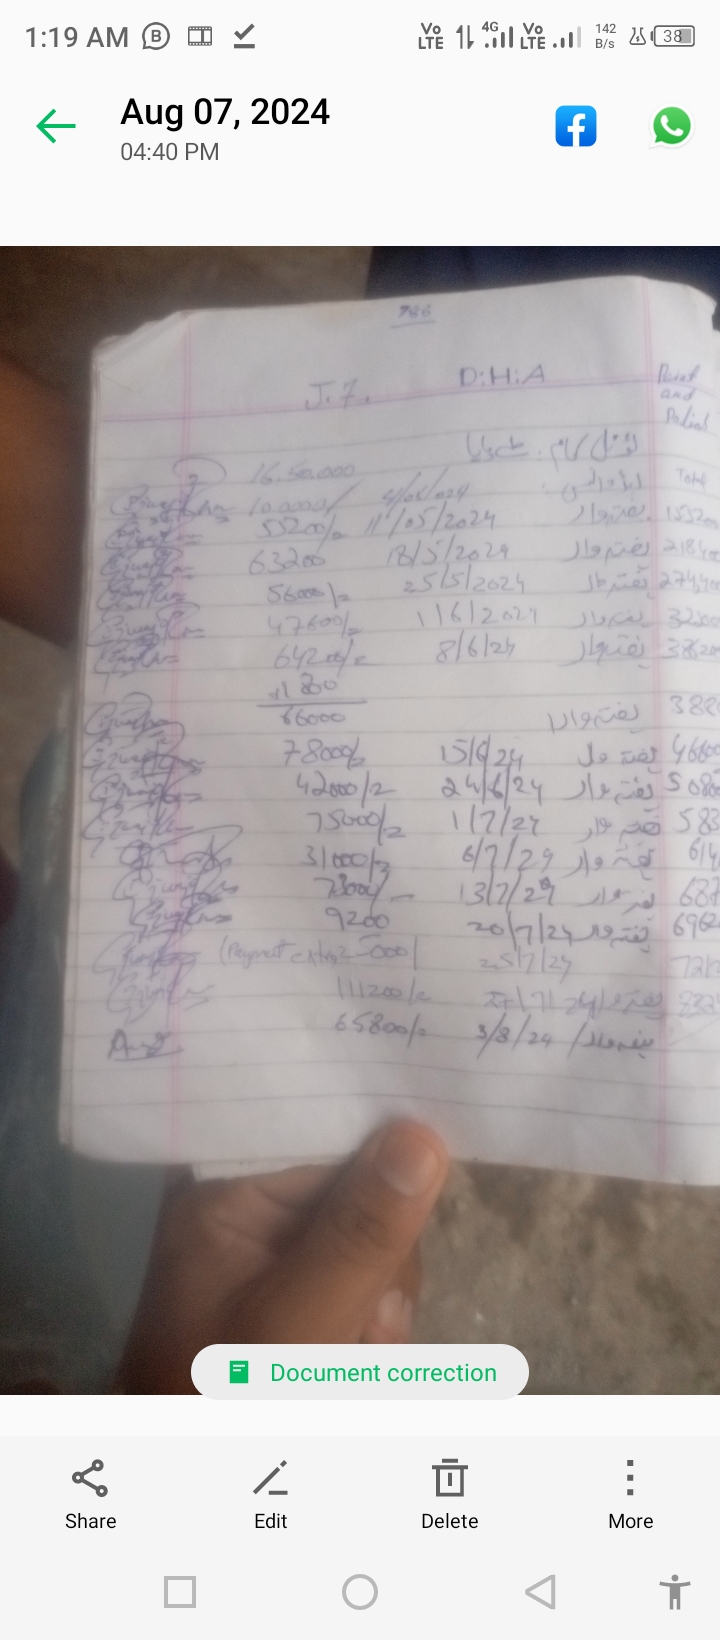 1:19 AM
Vo LTE 4G Vo LTE 142 B/s 38
Aug 07, 2024
04:40 PM
786
J.7. D:H:A Paint and Polish
ٹوٹل کام. طے پایا
16.50.000
Total
10.0000/ 4/05/024 ایڈوانس
55200/= 11/05/2024 ہفتہ وار 15520
63200 18/5/2024 ہفتہ وار 21840
56000/= 25/5/2024 ہفتہ وار 274,400
47600/= 1/6/2024 ہفتہ وار
64200/= 8/6/24 ہفتہ وار
1800
66000 ہفتہ وار 388
78000/= 15/6/24 ہفتہ وار 46600
42000/= 24/6/24 ہفتہ وار 5080
75000/= 1/7/24 ہفتہ وار 583
31000/= 6/7/24 ہفتہ وار 614
73000/- 13/7/24 ہفتہ وار 687
9200 20/7/24 ہفتہ وار 6962
(Payment extra 25000/ 25/7/24 721
111200/= 27/7/24 ہفتہ وار 832
65800/= 3/8/24 ہفتہ وار
Document correction
Share Edit Delete More